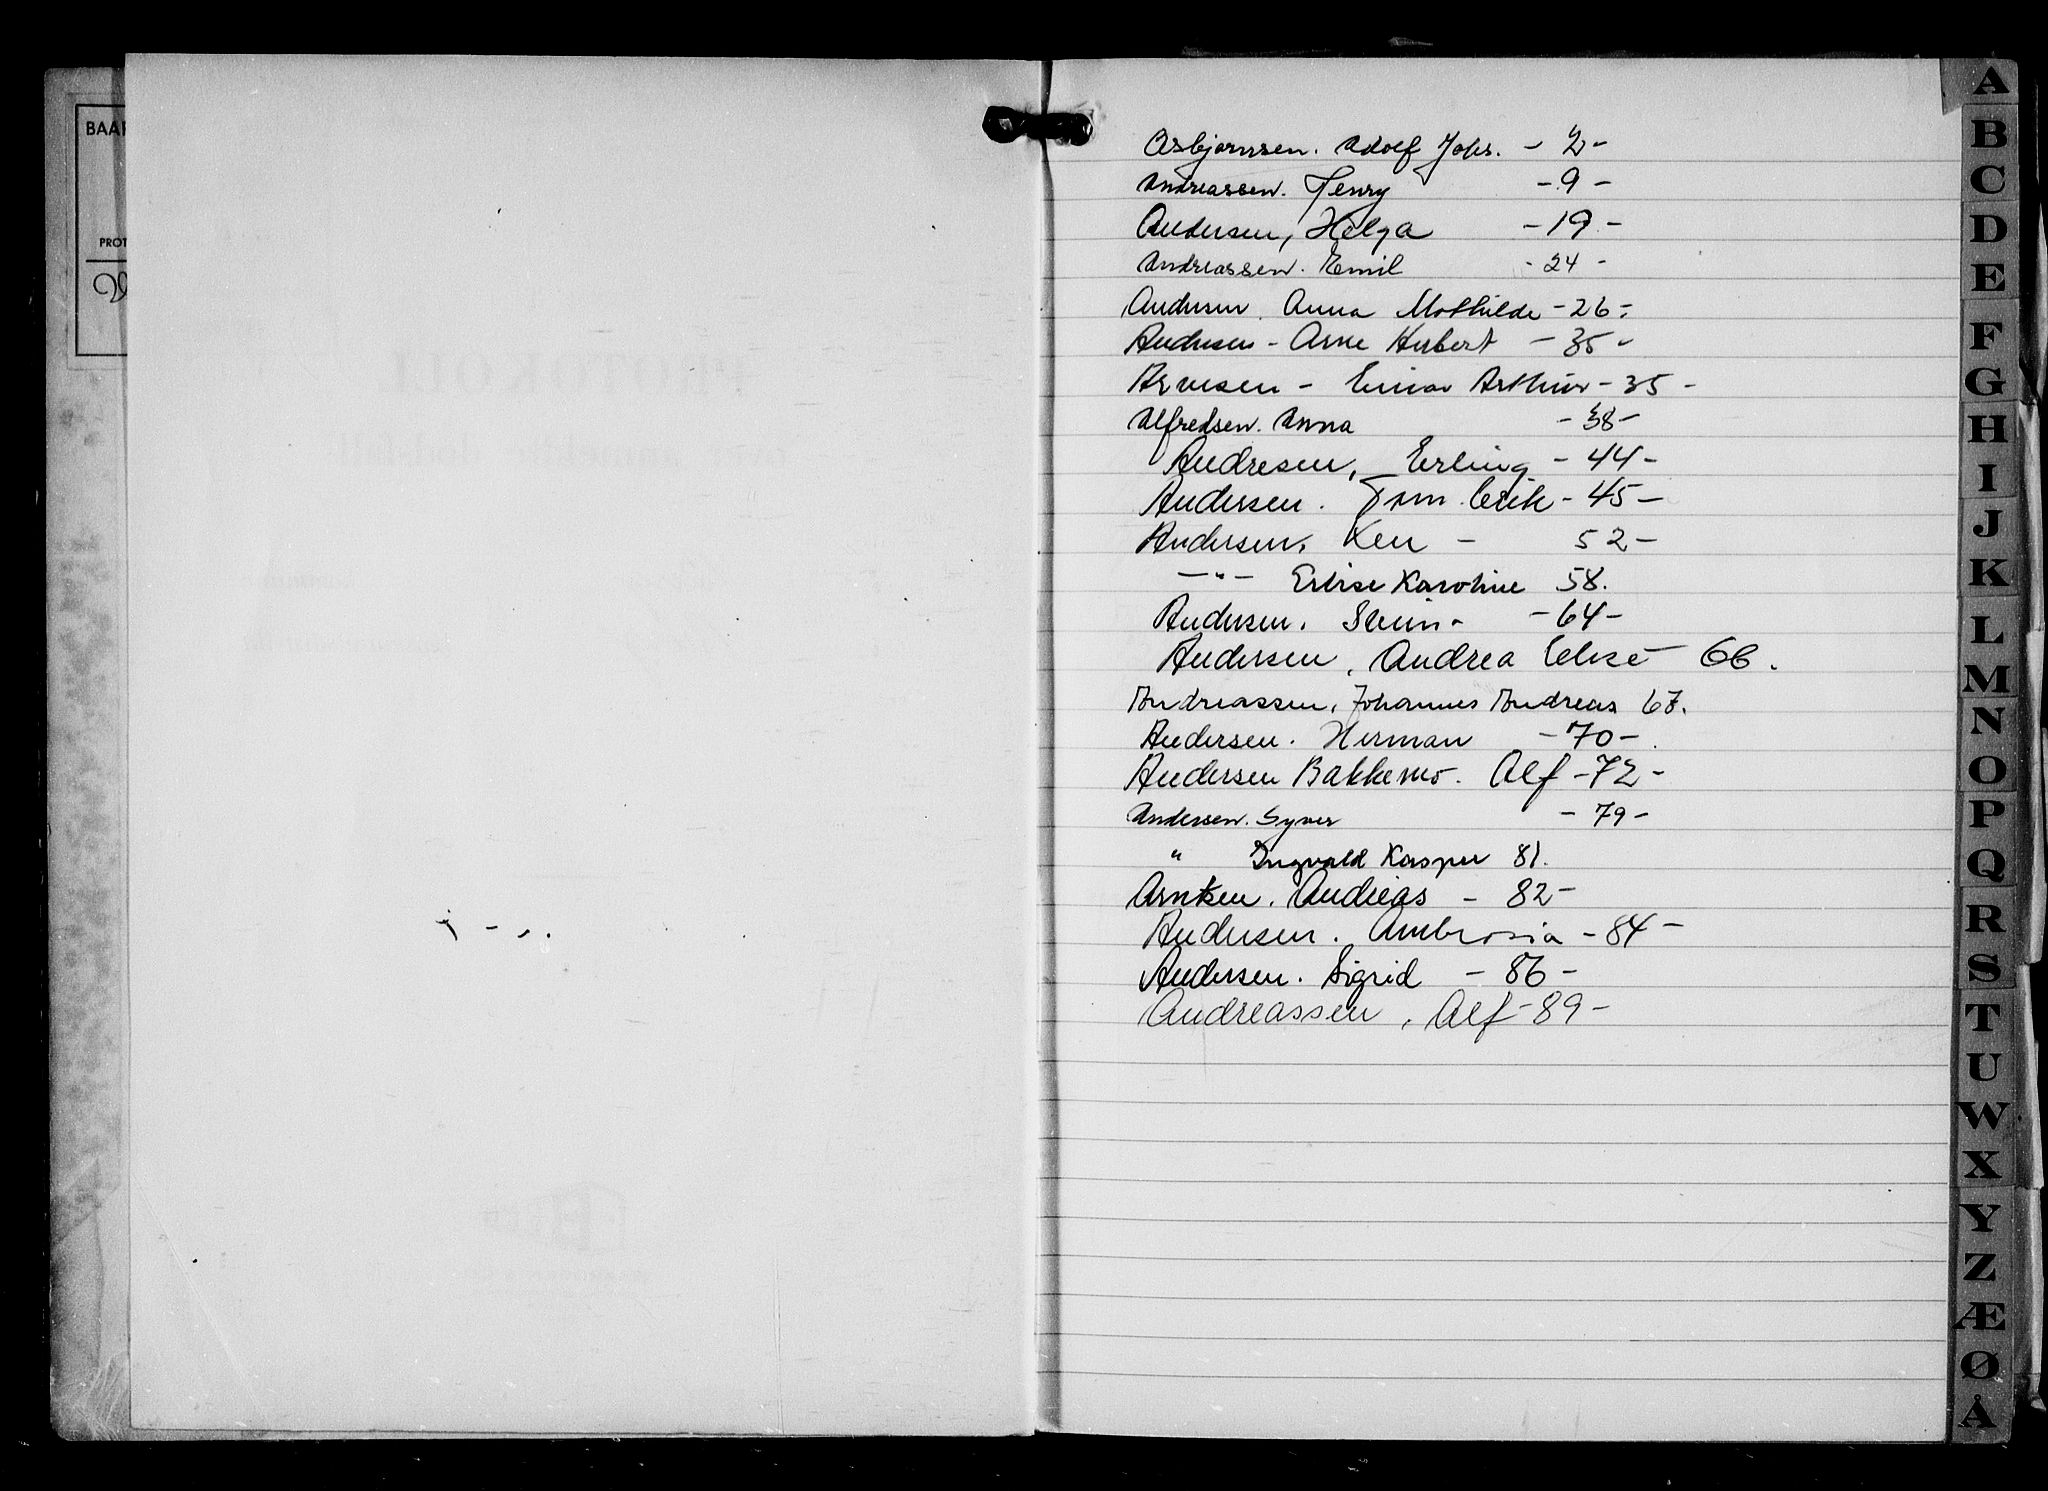 BAA
PROT
Asbjørnsen. Adolf Johs. - 2 -
Andreassen. Henry - 9 -
Andersen, Helga - 19 -
Andreassen. Emil - 24 -
Andersen. Anna Mathilde - 26 -
Andresen - Arne Herbert - 35 -
Arnesen - Einar Arthur - 35 -
Alfredsen. Anna - 38 -
Andresen, Erling - 44 -
Andersen. Tom Erik - 45 -
Andersen. Ken - 52 -
- " - Elvise Karoline 58.
Andersen. Stein - - 64 -
Andersen, Andrea Elise - 66.
Andreassen, Johannes Andreas 67.
Andersen. Herman - 70 -
Andersen Bakkemo. Alf - 72 -
Andersen. Syver - 79 -
" Ingvald Kasper 81.
Arntsen. Andreas - 82 -
Andersen. Ambrosia - 84 -
Andersen. Sigrid - 86 -
Andreassen, Alf - 89 -
A
B
C
D
E
F
G
H
I
J
K
L
M
N
O
P
Q
R
S
T
U
W
X
Y
Z
Æ
Ø
Å